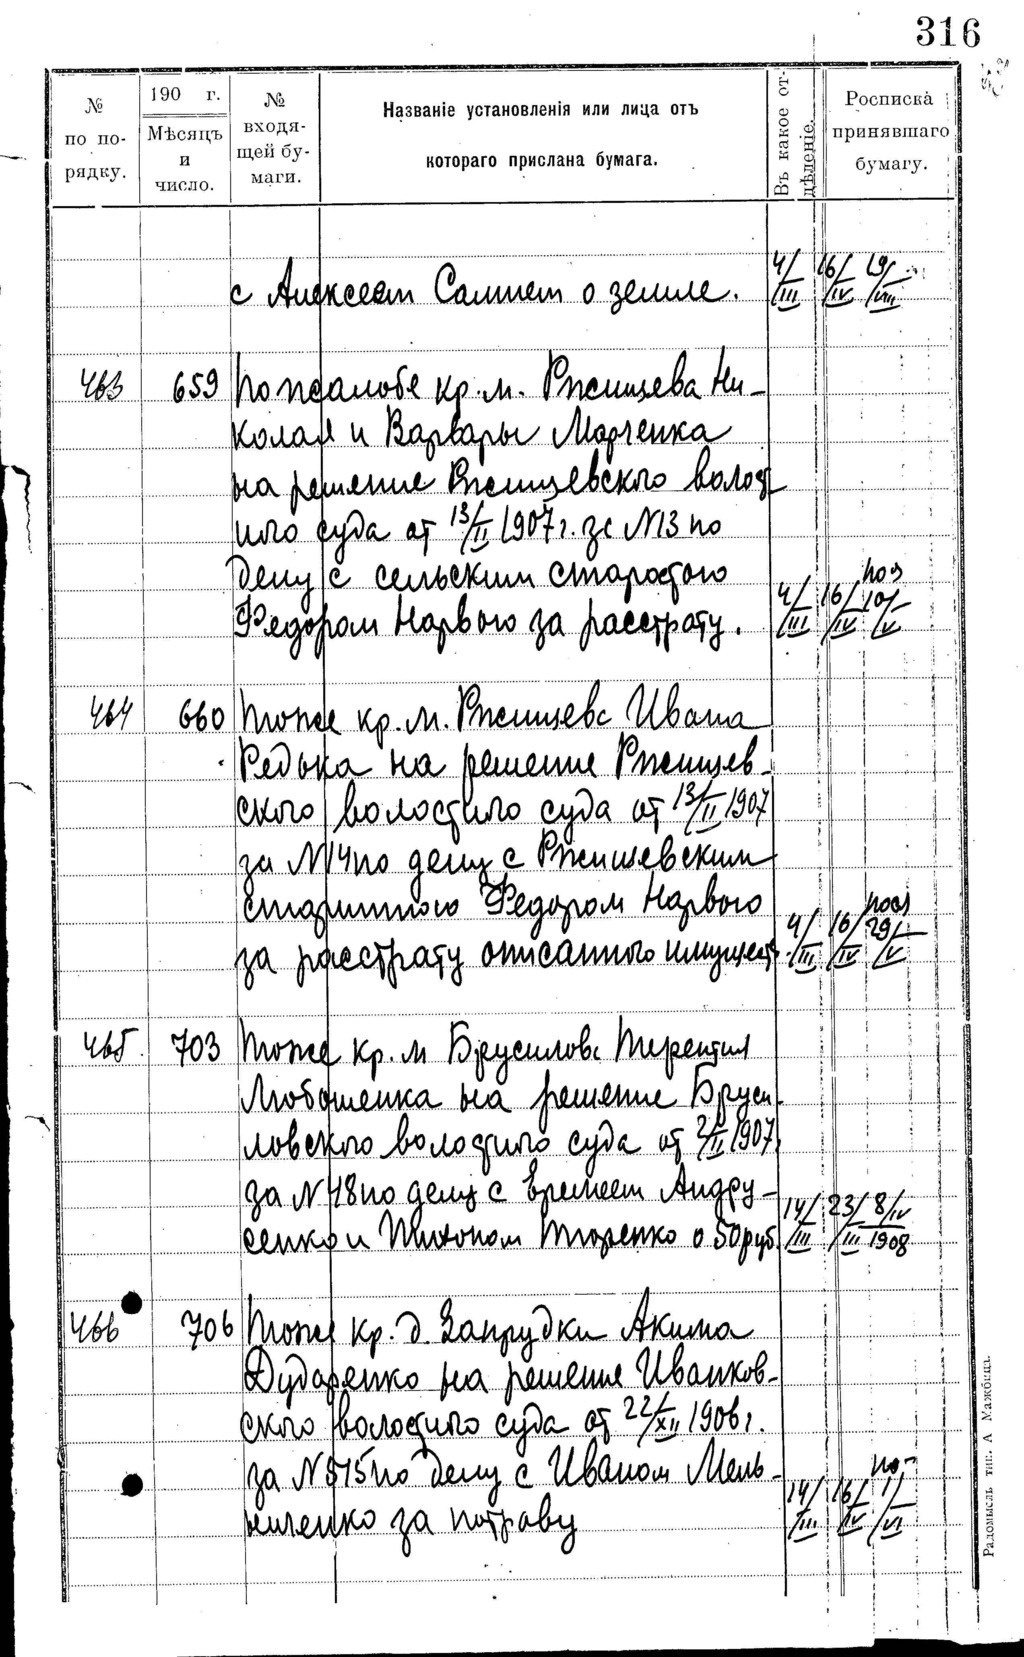 316
№ по по-рядку.
190 г. Мѣсяцъ и число.
№ входя-щей бу-маги.
Названіе установленія или лица отъ
котораго прислана бумага.
Въ какое от-дѣленіе.
Росписка принявшаго бумагу.
с Алексеем Саммет о земле. 4/III 16/IV 19/VIII
463 659 По жалобе кр. м. Ржищева Ни-
колая и Варвары Марченка
на решение Ржищевского волост
ного суда от 13/II 1907 г. за N 13 по
делу с сельским старостою
Федором Нарвою за растрату. 4/III 16/IV 10/V
464 660 Тоже кр. м. Ржищева Ивана
Редька на решение Ржищев-
ского волостного суда от 13/II 1907
за N 14 по делу с Ржищевским
Федором Нарвою
за растрату описанного имущест 4/III 16/IV 29/V
465 703 Тоже кр. м Брусилова Терентия
Любошенка на решение Бруси-
ловского волостного суда от 2/II 1907
за N 48 по делу с Еремеем Андру-
сенко и Тихоном о 50 руб. 14/III 23/III 8/IV 1908
466 706 Тоже кр. д. Запрудки Акима
Дударенко на решение Иванков-
ского волостного суда от 22/XII 1906 г.
за N 515 по делу с Иваном Мель-
ниченко за потраву 14/III 16/IV 1/VI
Радомысль тип. А Мажбица.